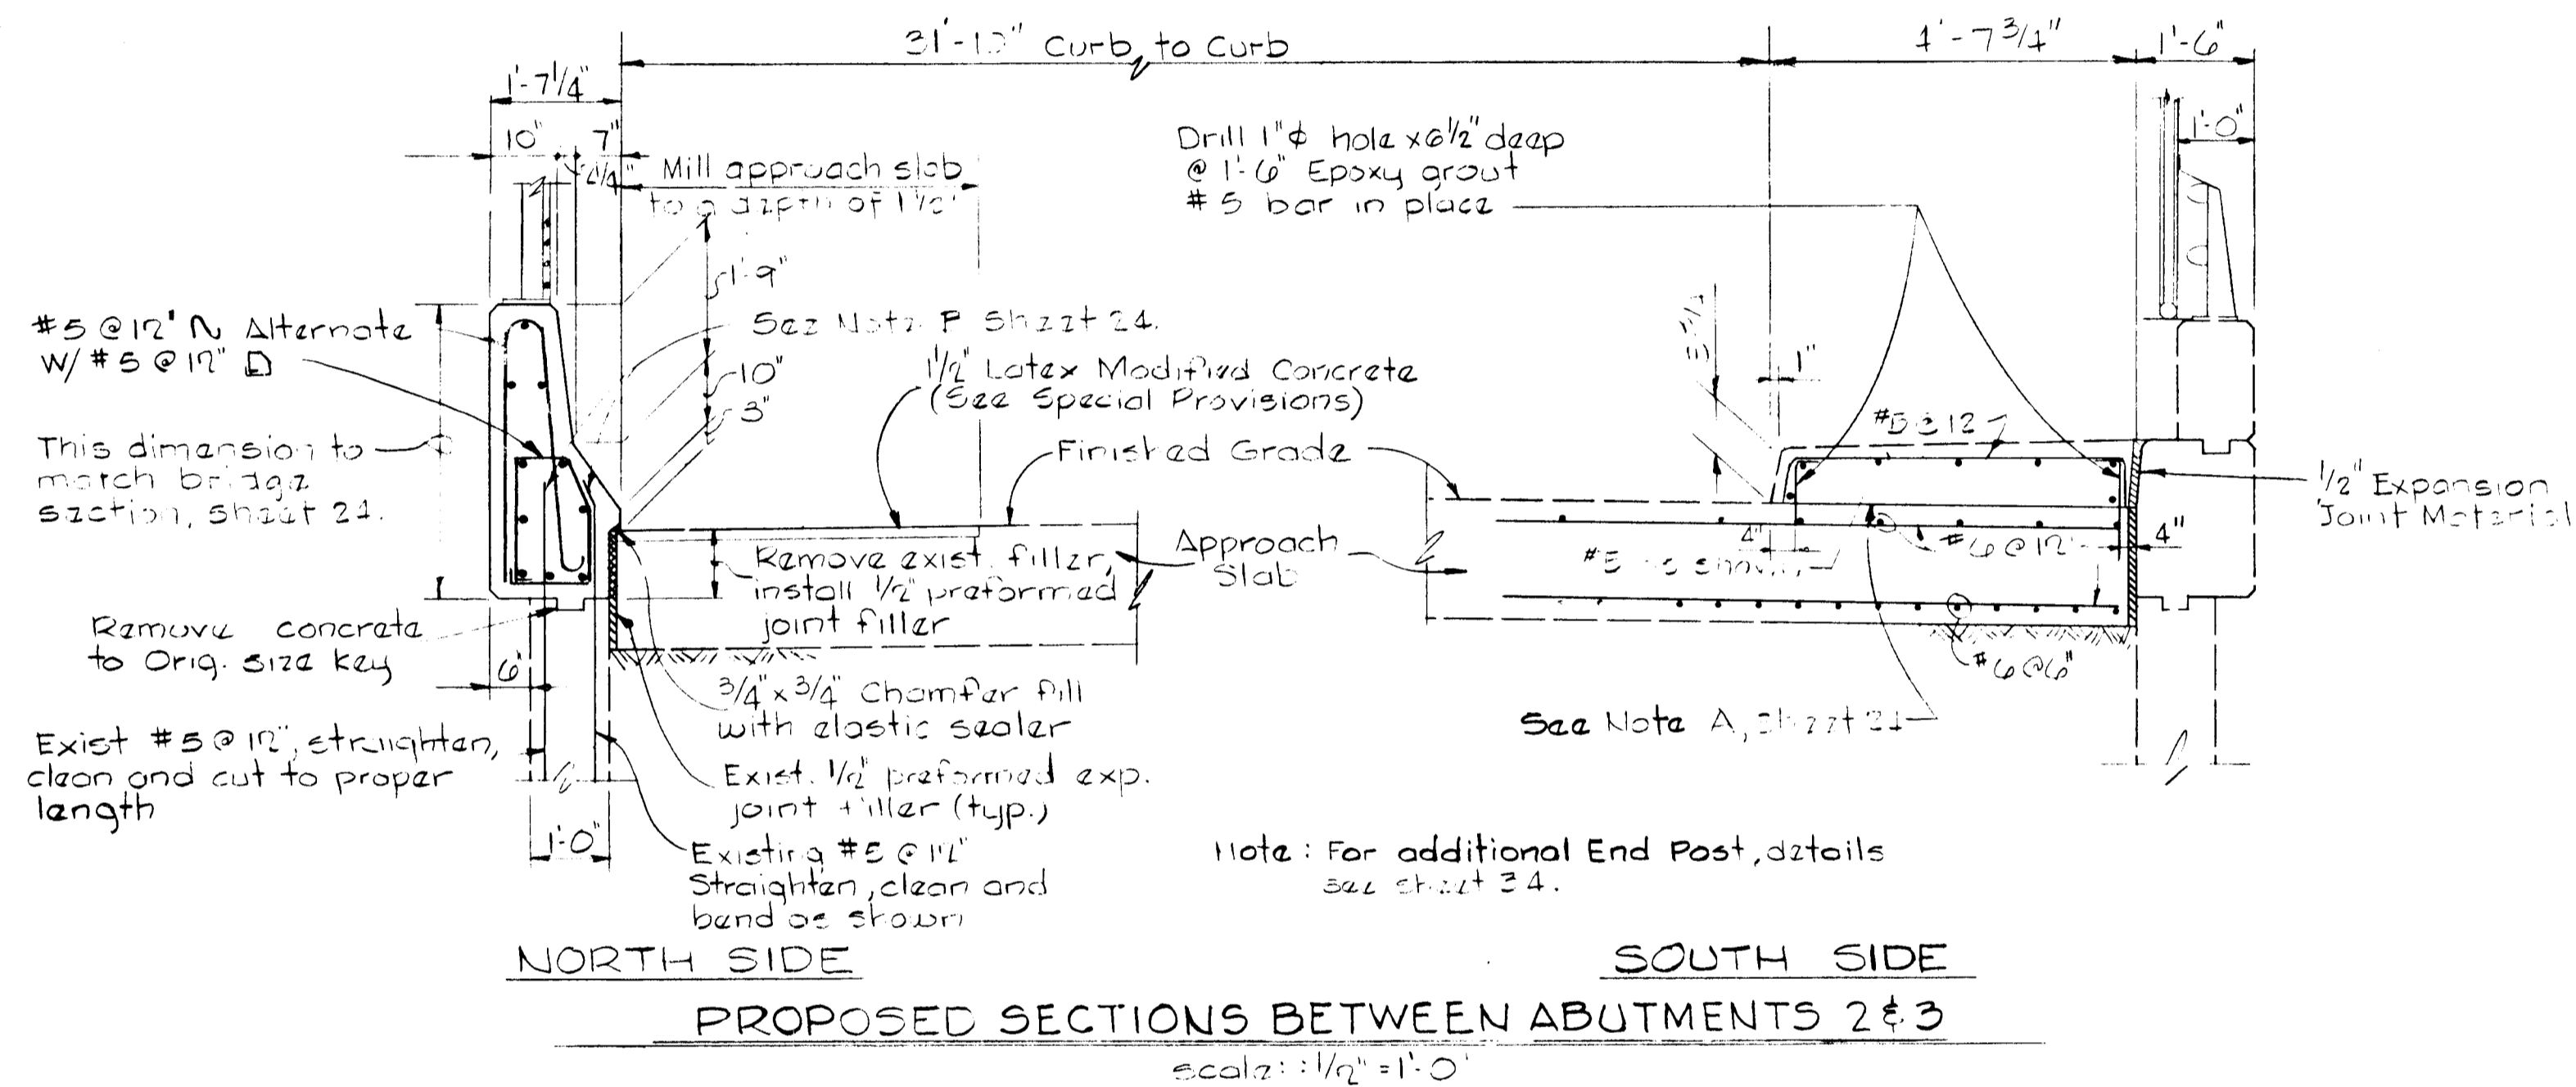 31'-10" Curb to Curb
4'-7 3/4"
1'-6"
1'-7 1/4"
10"
7"
2 1/4"
1'-0"
Mill approach slab
to a depth of 1 1/2"
Drill 1"ϕ hole x 6 1/2" deep
@ 1'-6" Epoxy grout
# 5 bar in place
1'-9"
10"
3"
See Note P Sheet 24.
1 1/2" Latex Modified Concrete
(See Special Provisions)
Finished Grade
#5 @ 12" Alternate
W/ #5 @ 12"
This dimension to
match bridge
section, Sheet 24.
1"
#5 @ 12
1/2" Expansion
Joint Material
4"
4"
#6 @ 12"
#5 as shown
Approach
Slab
Remove exist. filler,
install 1/2" preformed
joint filler
Remove concrete
to Orig. size key
6"
#6 @ 6"
3/4" x 3/4" Chamfer fill
with elastic sealer
See Note A, Sheet 24
Exist #5 @ 12", straighten,
clean and cut to proper
length
Exist. 1/2" preformed exp.
joint filler (typ.)
1'-0"
Existing #5 @ 12"
Straighten, clean and
bend as shown
Note: For additional End Post, details
see sheet 34.
NORTH SIDE
SOUTH SIDE
PROPOSED SECTIONS BETWEEN ABUTMENTS 2 & 3
scale: 1/2" = 1'-0"